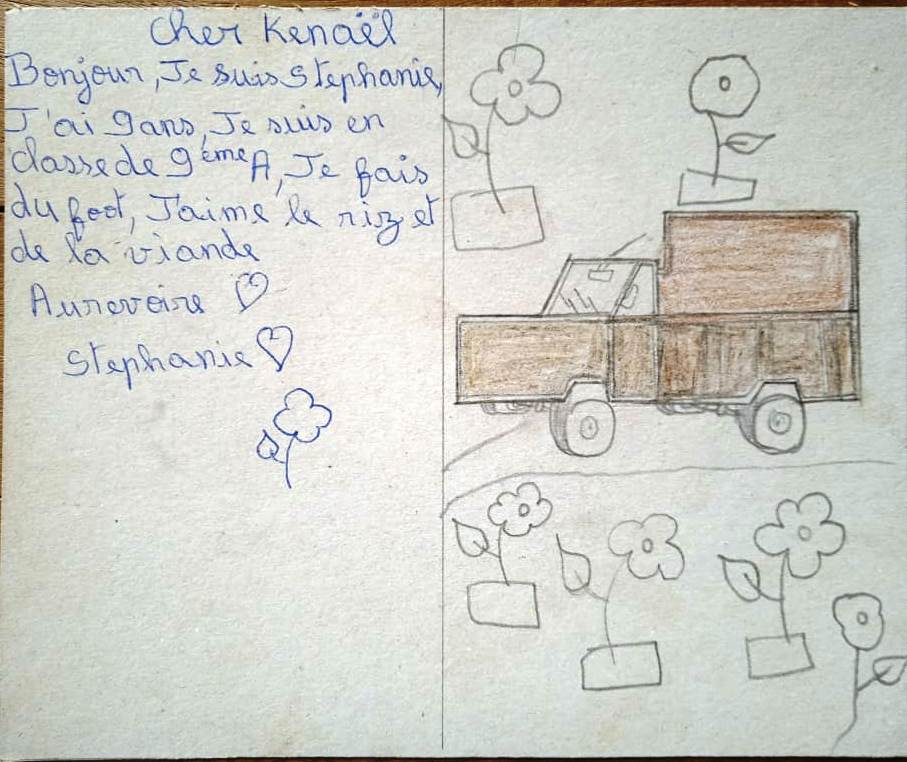 Cher Kenaël
Bonjour, Je suis Stephanie,
J'ai 9ans, Je suis en
classe de 9ème A, Je fais
du foot, J'aime le riz et
de la viande
Aurevoire ♡
Stephanie ♡